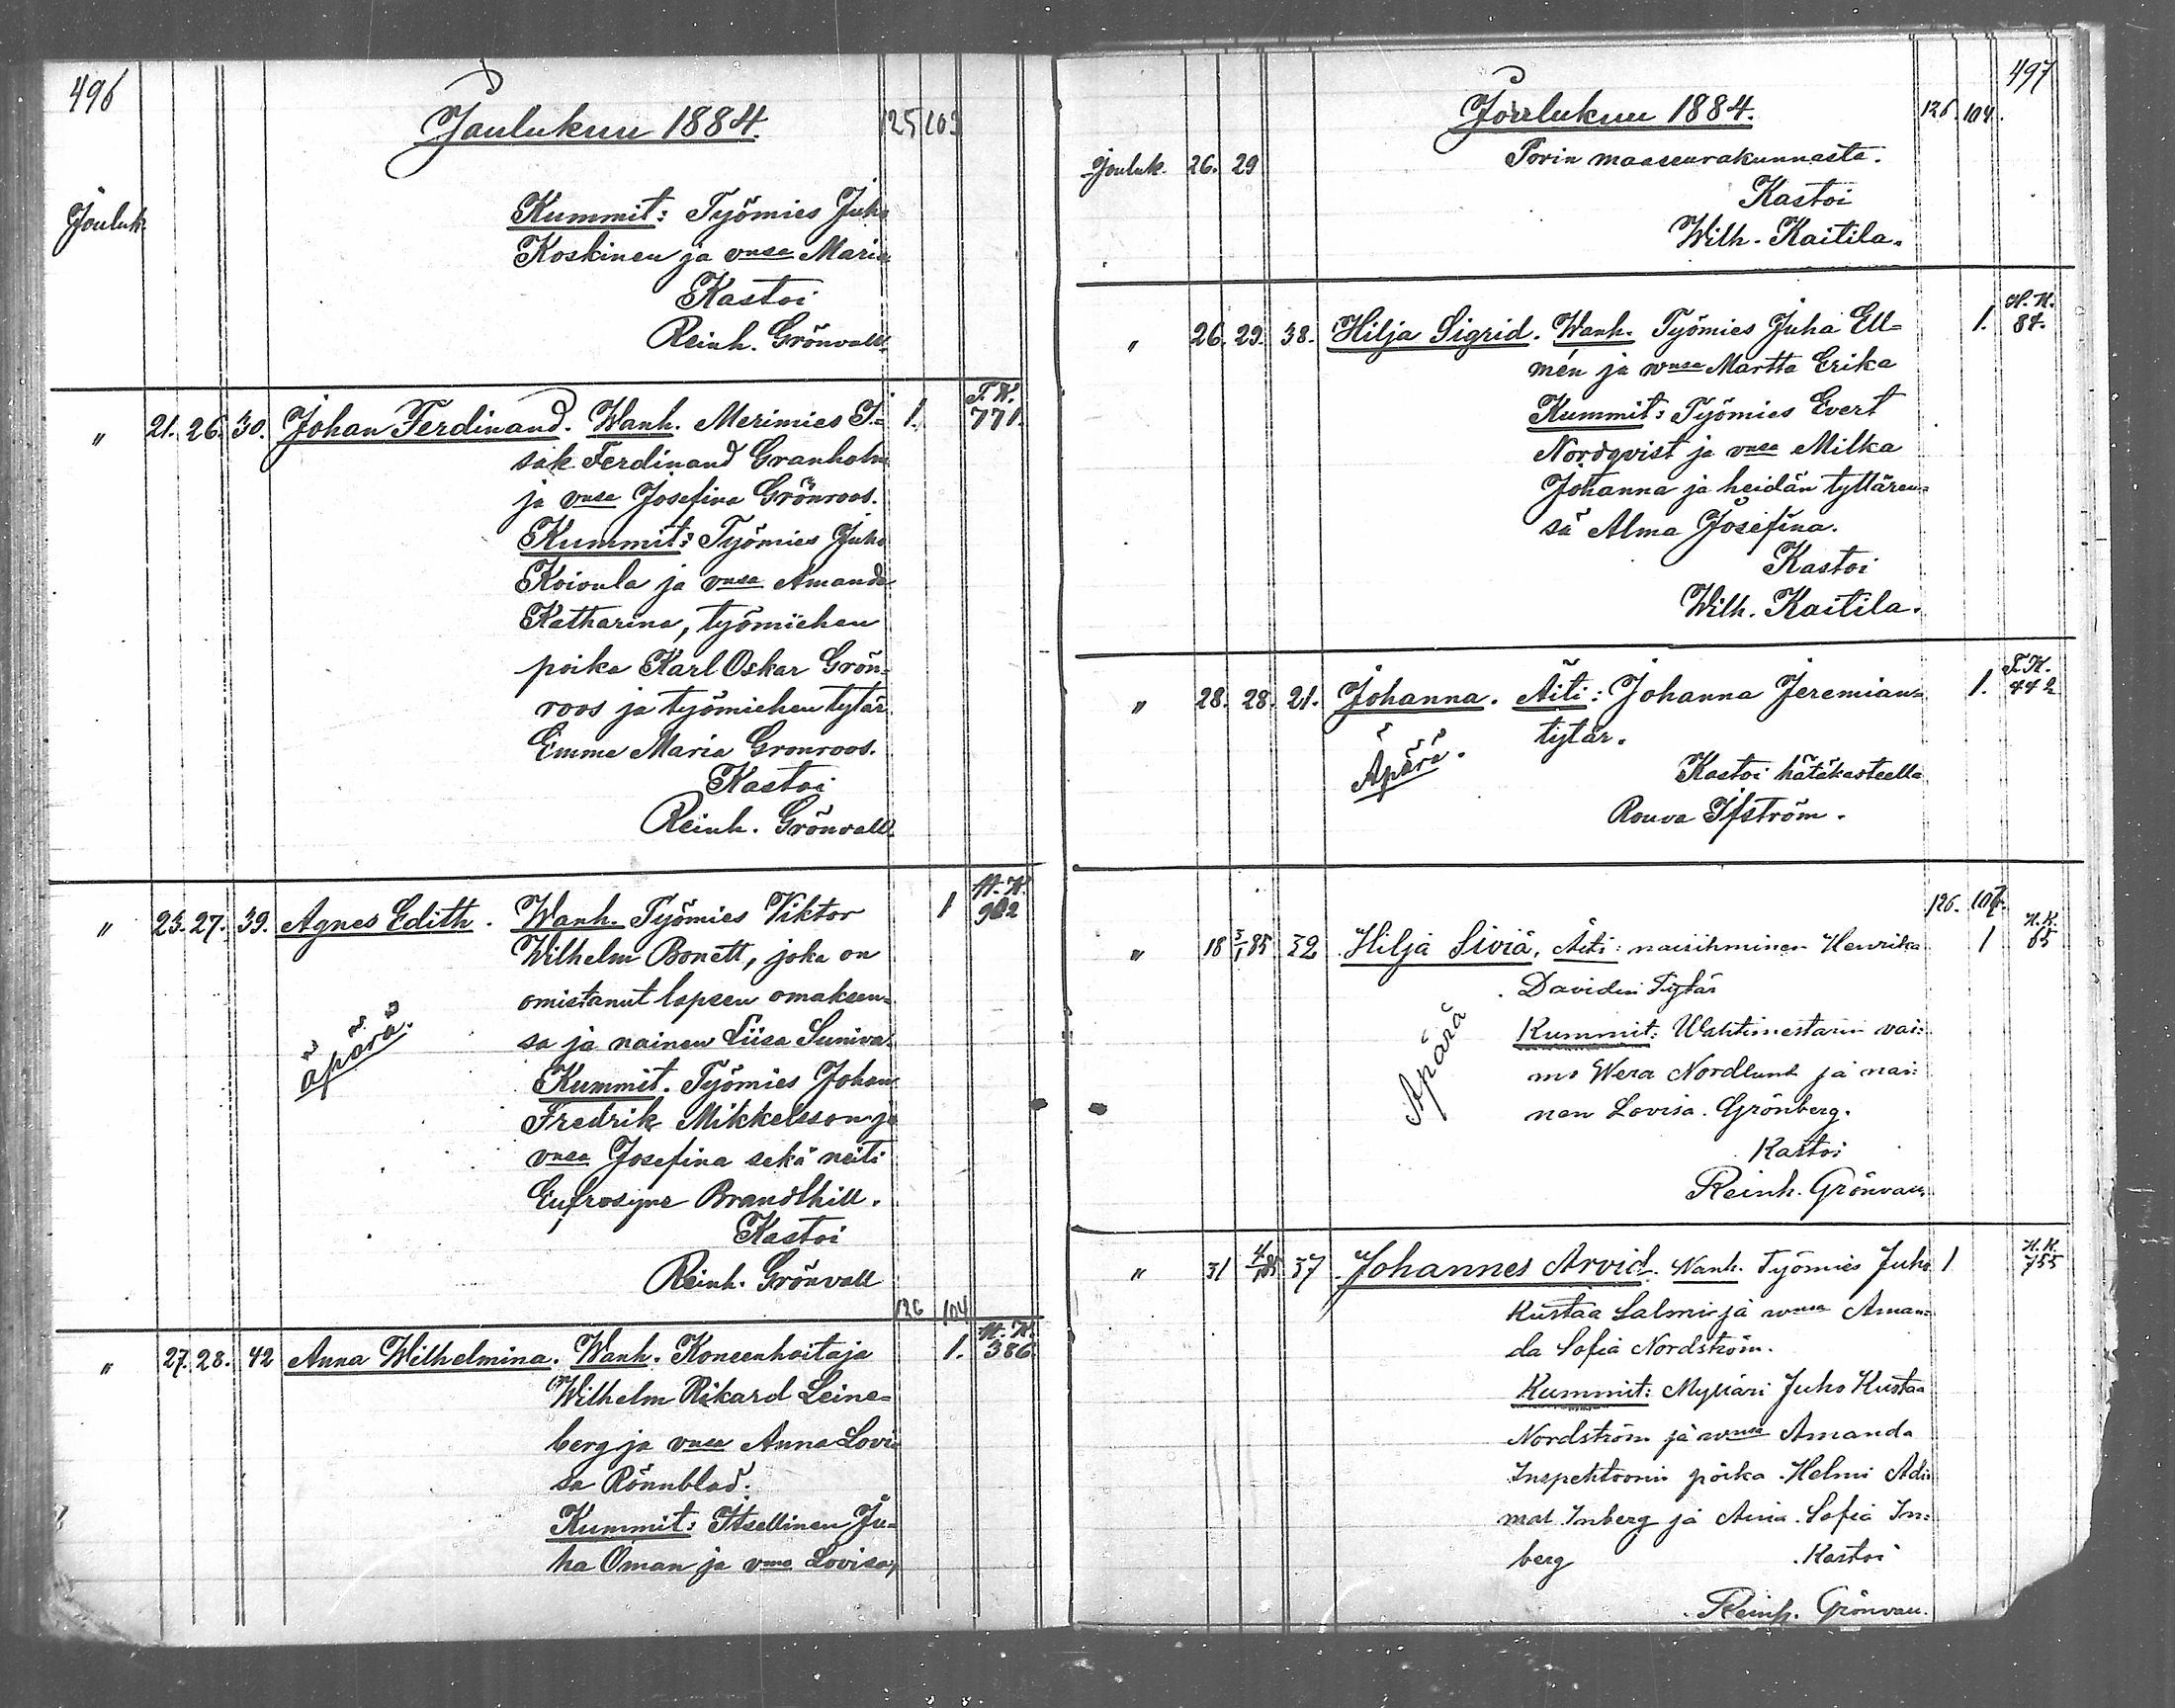 496
Joulukuu 1884.
125 103
Jouluk.
Kummit: Työmies Juho
Koskinen ja vnsa Maria
Kastoi
Reinh. Grönvall.
" 21. 26. 30. Johan Ferdinand. Wanh. Merimies I- 1. T.K. 771.
sak Ferdinand Granholm
ja vnsa Josefina Grönroos.
Kummit: Työmies Juho
Koivula ja vnsa Amanda
Katharina, työmiehen
poika Karl Oskar Grön-
roos ja työmiehen tytär
Emma Maria Gronroos.
Kastoi
Reinh. Grönvall.
" 23. 27. 39. Agnes Edith. Wanh. Työmies Viktor 1
Wilhelm Bonett, joka on
omistanut lapsen omaksen-
sa ja nainen Liisa Suniva.
äpärä.
Kummit. Työmies Johan
Fredrik Mikkelsson ja
vnsa Josefina sekä neiti
Eufrosyne Brandthill.
Kastoi
Reinh. Grönvall
126 104
" 27. 28. 42 Anna Wilhelmina. Wanh. Koneenhoitaja 1. 386.
Wilhelm Rikard Leine-
berg ja vnsa Anna Lovi-
sa Rönnblad.
Kummit: Itsellinen Ju-
ha Öman ja vnsa Lovisa,
497
Joulukuu 1884.
126. 104.
Jouluk. 26. 29 Porin maaseurakunnasta.
Kastoi
Wilh. Kaitila.
" 26. 29. 38. Hilja Sigrid. Wanh. Työmies Juha Ell- 1. 84.
mén ja wnsa Martta Erika
Kummit: Työmies Evert
Nordqvist ja vnsa Milka
Johanna ja heidän tyttären-
sä Alma Josefina.
Kastoi
Wilh. Kaitila.
" 28. 28. 21. Johanna. Äiti: Johanna Jeremian- 1. T.K. 442
tytär.
Äpärä.
Kastoi hätäkasteella
Rouva Ifström.
126. 107.
" 18 3/1 85 32 Hilja Siviä. Äiti: naisihminen Henrika 1 H.K. 65
Davidin Tytär
Apärä
Kummit: Wahtimestarin vai-
mo Wera Nordlund ja nai-
nen Lovisa Grönberg.
Kastoi
Reinh. Grönvall.
" 31 4/1 85 37 Johannes Arvid. Wanh. Työmies Juho 1 H.K. 755
Kustaa Salmi ja wnsa Aman-
da Sofia Nordström.
Kummit: Mylläri Juho Kustaa
Nordström ja wnsa Amanda
Inspehtoorin poika Helmi
Inberg ja Sofia In-
berg Kastoi
Reinh. Grönvall.